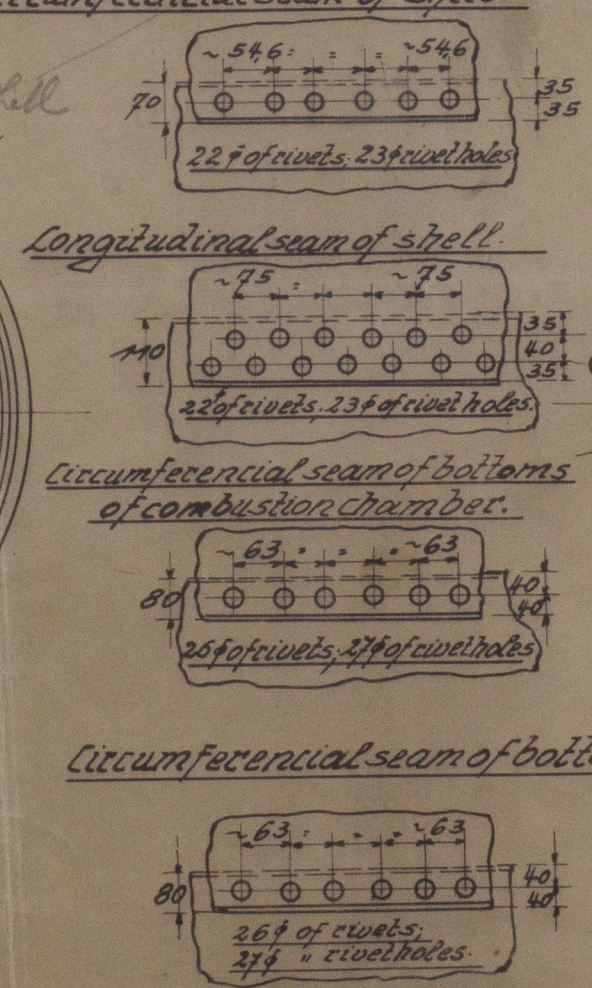 Circumferencial seam of shell
~ 54,6 = = = ~ 54,6
70
35
35
22 ϕ of rivets; 23 ϕ rivetholes
Longitudinal seam of shell.
~ 75 = ~ 75
110
35
40
35
22 ϕ of rivets. 23 ϕ of rivet holes.
Circumferencial seam of bottoms
of combustion chamber.
~ 63 = = = ~ 63
80
40
40
26 ϕ of rivets; 27 ϕ of rivetholes
Circumferencial seam of botto
~ 63 = = = ~ 63
80
40
40
26 ϕ of rivets;
27 ϕ " rivetholes.